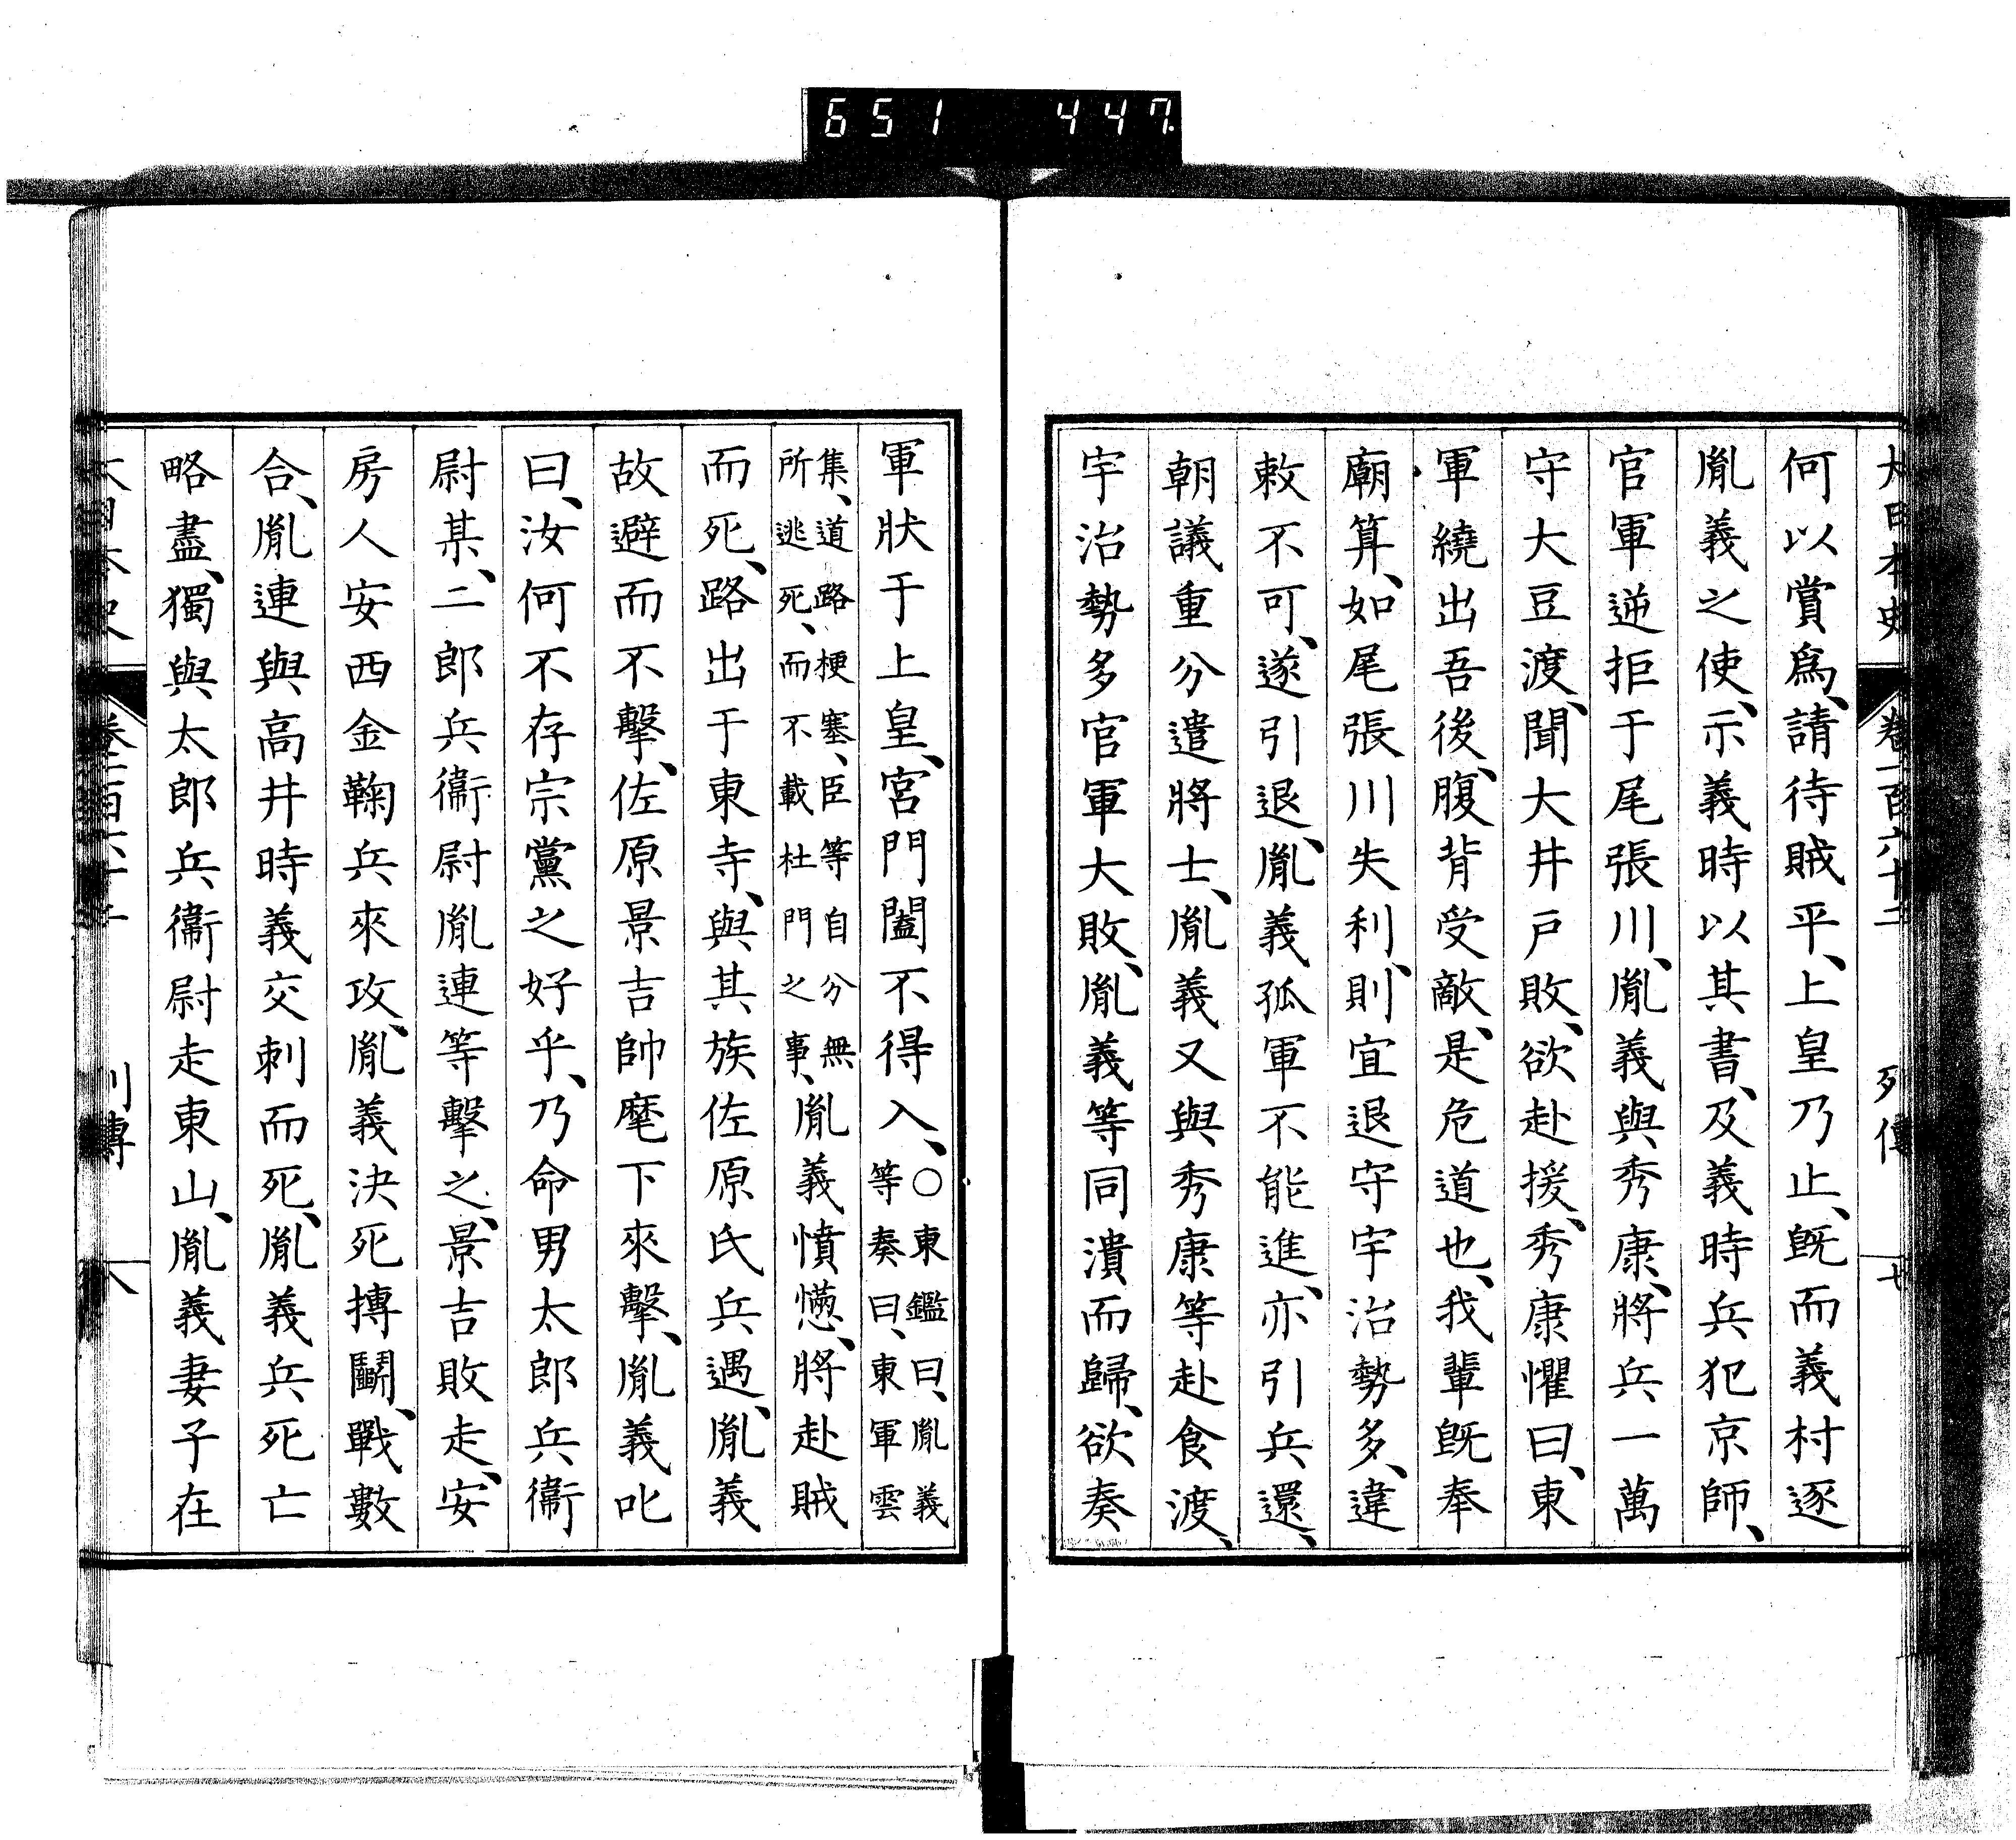 651 447
大日本史 卷一百六十二 列傳 七
何以賞爲、請待賊平、上皇乃止、既而義村逐
胤義之使、示義時以其書、及義時兵犯京師、
官軍逆拒于尾張川、胤義與秀康、將兵一萬
守大豆渡、聞大井戸敗、欲赴援、秀康懼曰、東
軍繞出吾後、腹背受敵、是危道也、我輩既奉
廟算、如尾張川失利、則宜退守宇治勢多、違
敕不可、遂引退、胤義孤軍不能進、亦引兵還、
朝議重分遣將士、胤義又與秀康等赴食渡、
宇治勢多官軍大敗、胤義等同潰而歸、欲奏
軍狀于上皇、宮門闔不得入、○東鑑曰、胤義
等奏曰、東軍雲
集、道路梗塞、臣等自分無
所逃死、而不載杜門之事、胤義憤懣、將赴賊
而死、路出于東寺、與其族佐原氏兵遇、胤義
故避而不擊、佐原景吉帥麾下來擊、胤義叱
曰、汝何不存宗黨之好乎、乃命男太郎兵衞
尉某、二郎兵衞尉胤連等擊之、景吉敗走、安
房人安西金鞠兵來攻、胤義決死搏鬭、戰數
合、胤連與高井時義交刺而死、胤義兵死亡
略盡、獨與太郎兵衞尉走東山、胤義妻子在
列傳 八